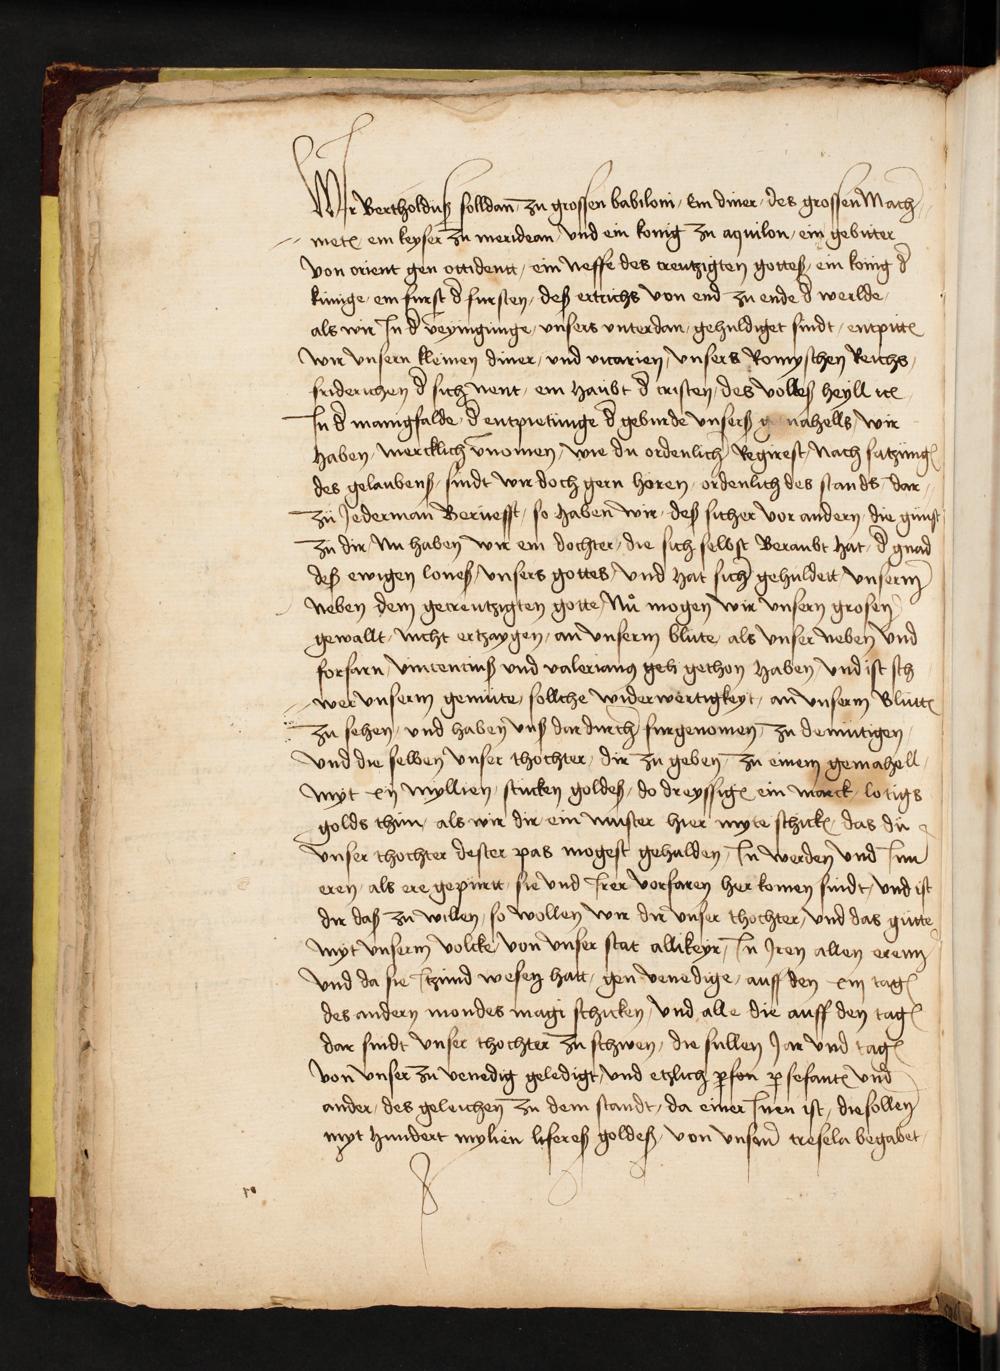 Wir Bertholduß solldan zu grossen babiloni / ein diner / des grossen Mach
metz ein keyser zu meridean / und ein konig zu aquilon / ein gebieter
von orient gen occidentt / ein Neffe des creutzigten gotteß / ein konig d
künige / ein furst d fursten / deß ertrichs von end zu ende d werlde /
als wir In d unsers unterdan / gehuldiget sindt / entpitte
wir unsern kleinen diner / und vicarien / unsers Romyschen Reichs /
friderichen d sich nent / ein Haubt d cristen / des volkeß heyll
In d manigfalde / d entpietunge d geburde unserß gemahells / wir
haben / mercklich vnomen / wie du ordenlich Regirest / Nach satzung
des gelaubenß / sindt wir doch gern horen / ordenlich des stands dar /
zü Jederman Berüefft / so haben wir / deß sicher vor andern / die gunst
zu dir / Nu haben wir ein dochter / die sich selbst Beraubt hat / d gnad
deß ewigen loneß / unsers gottes / und hat sich gehuldett / unserm
Neben dem gecreutzigten gotte / Nu mogen wir unsern grosen
gewallt / nicht ertzaygen / an unserm blute / als unser neben und
forfarn / vincentiuß und valerianus gethon haben / und ist sch
wer unserm gemüte / sollche widerwertigkeyt / an unserm Blütt
zu sehen / und haben unß dardurch furgenomen / zu demutigen /
und die selben unser thochter / dir zu geben / zu einem gemahell /
myt xii myllien / stucken goldeß / do dreyssig ein marck / lotigs
golds thun / als wir dir ein muster hier myte schick / das du
unser thochter dester pas mogest gehalden / In werden und Inn
eren / als ere gepürtt / sie und Irer vorfaren her komen sindt / und ist
dir daß zu willen / so wollen wir dir unser thochter / und das gütte
myt unserm volcke von unser stat allikeyr / In Iren allen erenn
und da sie Itzund wesen hatt / gen venedige / auff den xiii tag
des andern mondes magi schicken / und alle die auff den tag
dar sindt unser thochter zu schwen / die sullen Jar und tag
von unser zu venedig geledigt / und etzlich und
ander / des geleichen zu dem standt / da einer Inen ist / die sollen
myt hundert mylien lifereß goldeß / von unsern tresela begabet /